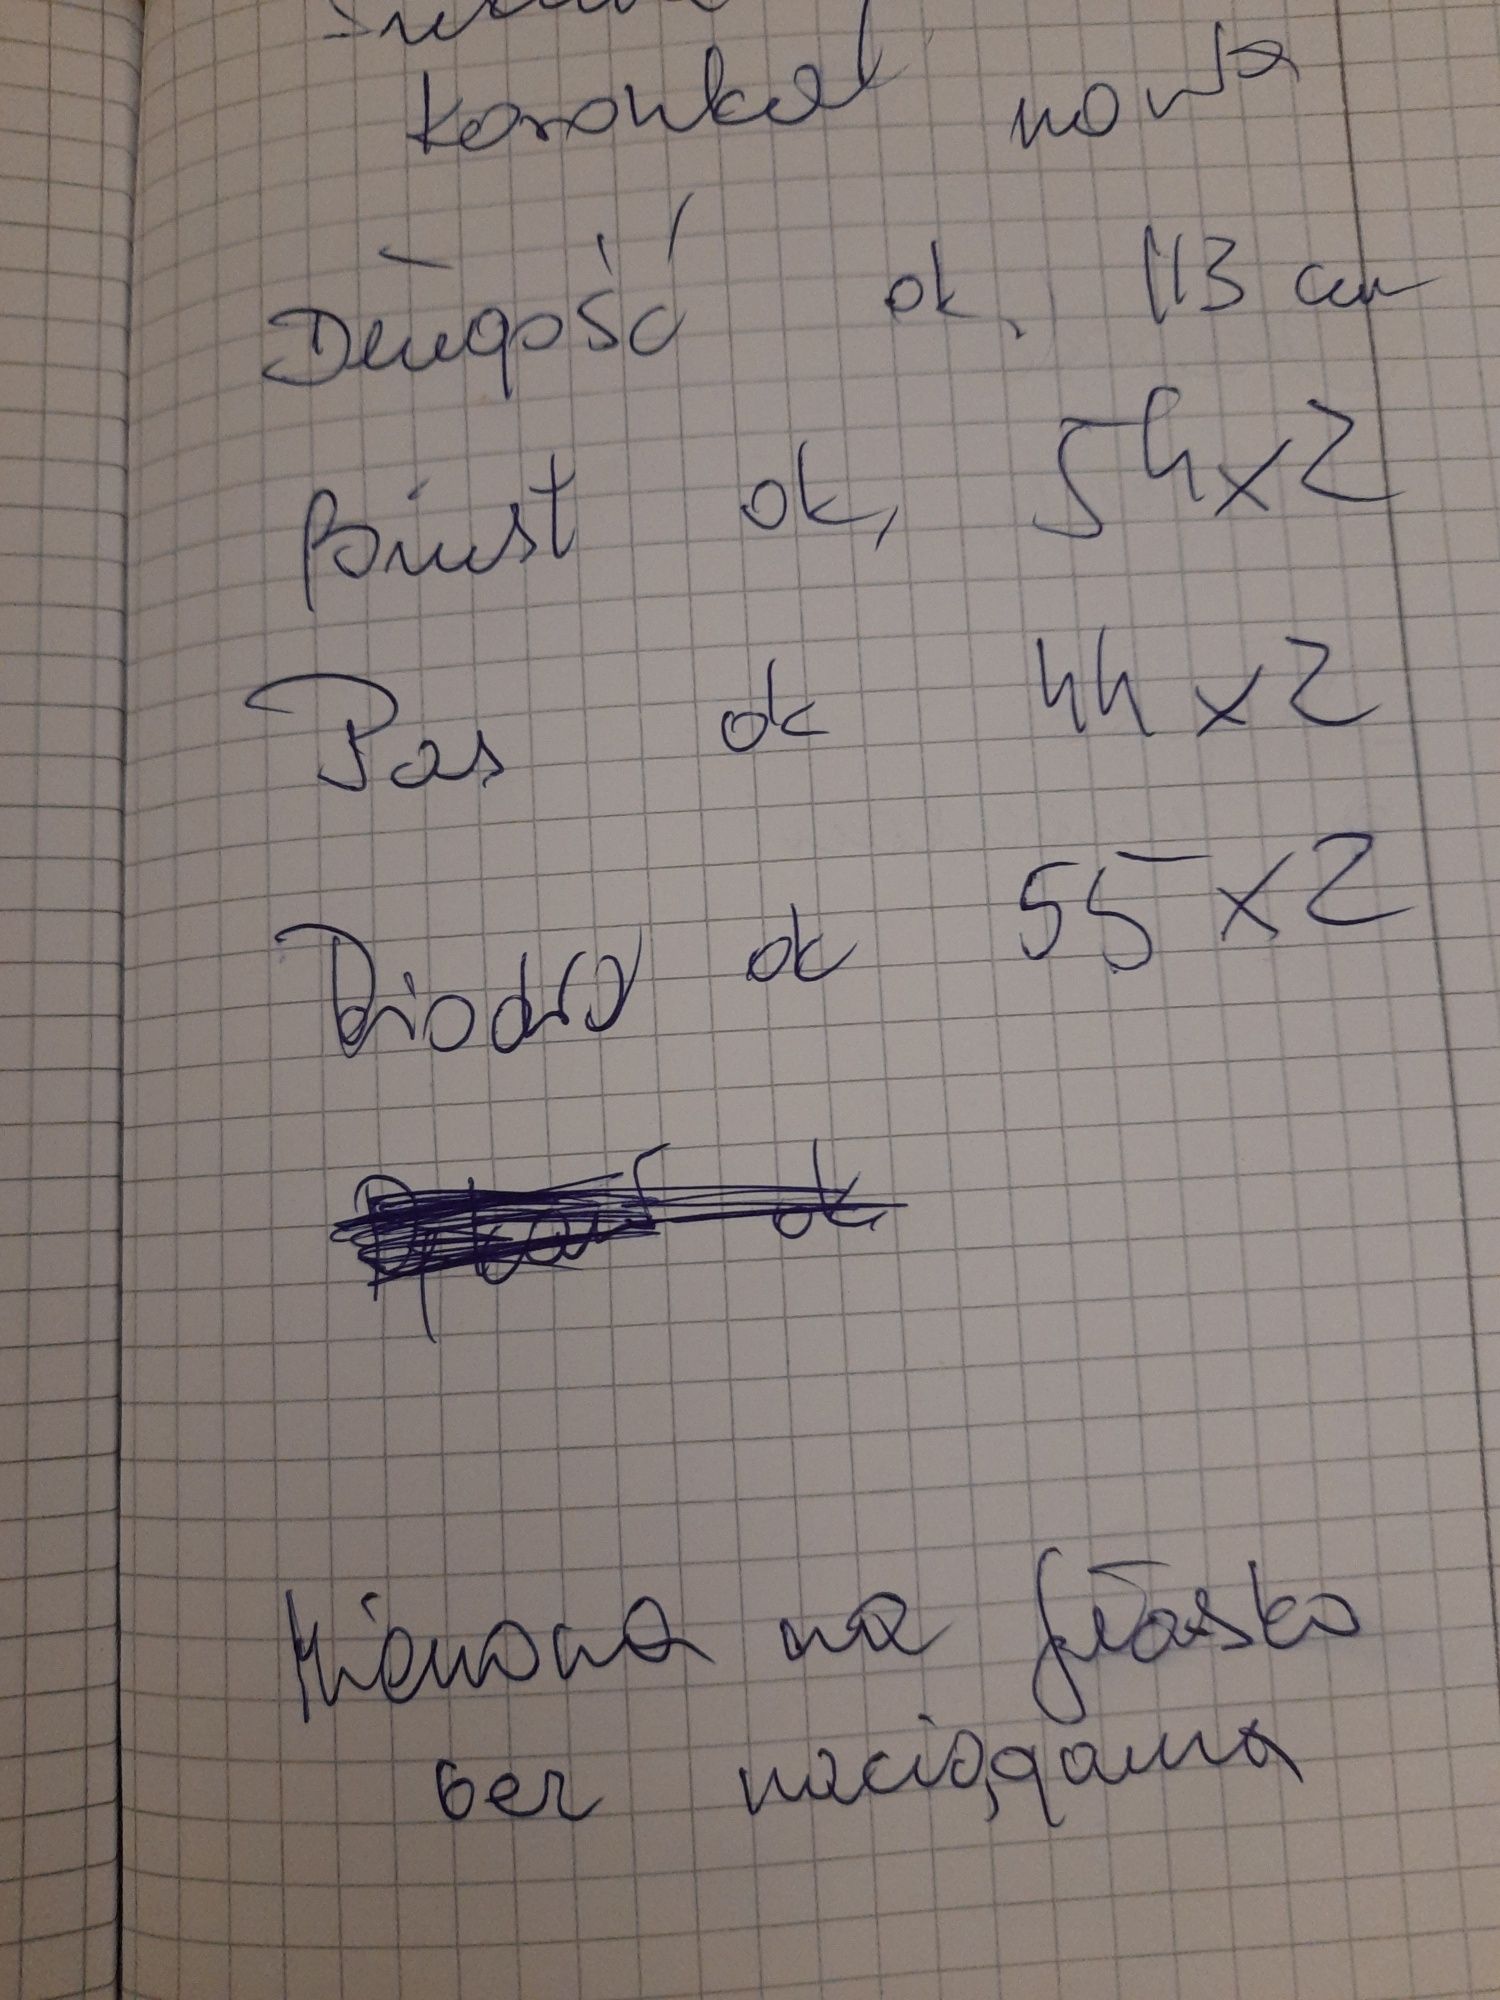 koronka nowa
Długość ok. 113 cm
Biust ok, 54x2
Pas ok 44x2
Biodra ok 55x2
ok,
Mierzona na płasko
bez naciągania